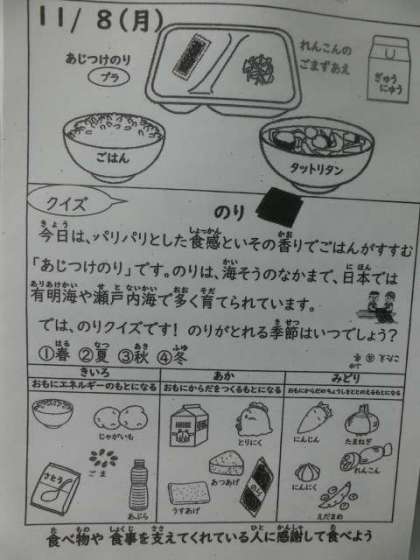 11/8(月)
あじつけのり
プラ
れんこんの
ごまずあえ
ぎゅう
にゅう
ごはん
タットリタン
クイズ
のり
今日は、パリパリとした食感といその香りでごはんがすすむ
「あじつけのり」です。のりは、海そうのなかまで、日本では
有明海や瀬戸内海で多く育てられています。
では、のりクイズです！ のりがとれる季節はいつでしょう？
①春 ②夏 ③秋 ④冬
きいろ
おもにエネルギーのもとになる
あか
おもにからだをつくるもとになる
みどり
おもにからだのちょうしをととのえるもとになる
じゃがいも
ごま
さとう
あぶら
とりにく
あつあげ
うすあげ
のり
にんじん
たまねぎ
れんこん
にんにく
えだまめ
食べ物や食事を支えてくれている人に感謝して食べよう